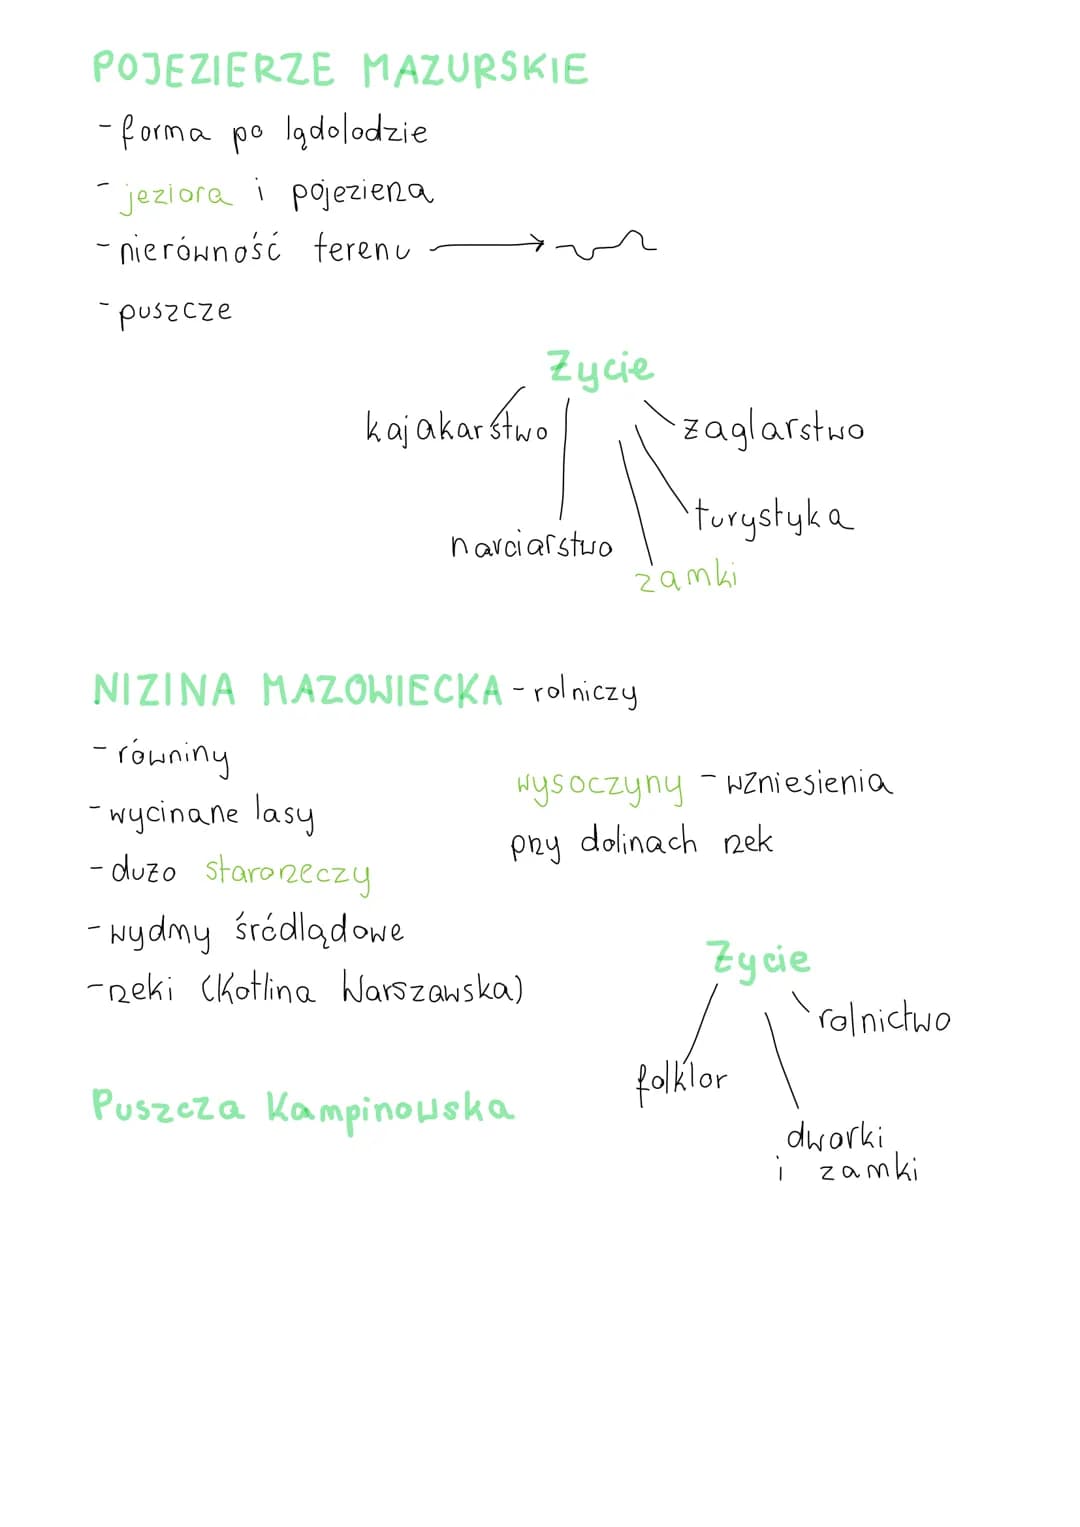 POJEZIERZE MAZURSKIE
- forma po lądolodzie
- jeziora i pojezierza
- nierówność terenu →
- puszcze
Życie
kajakarstwo
żaglarstwo
turystyka
narciarstwo
zamki
NIZINA MAZOWIECKA - rolniczy
- równiny
- wycinane lasy
- dużo starorzeczy
- wydmy śródlądowe
- rzeki (Kotlina Warszawska)
wysoczyny - wzniesienia
przy dolinach rzek
Życie
rolnictwo
folklor
dworki
i zamki
Puszcza Kampinowska